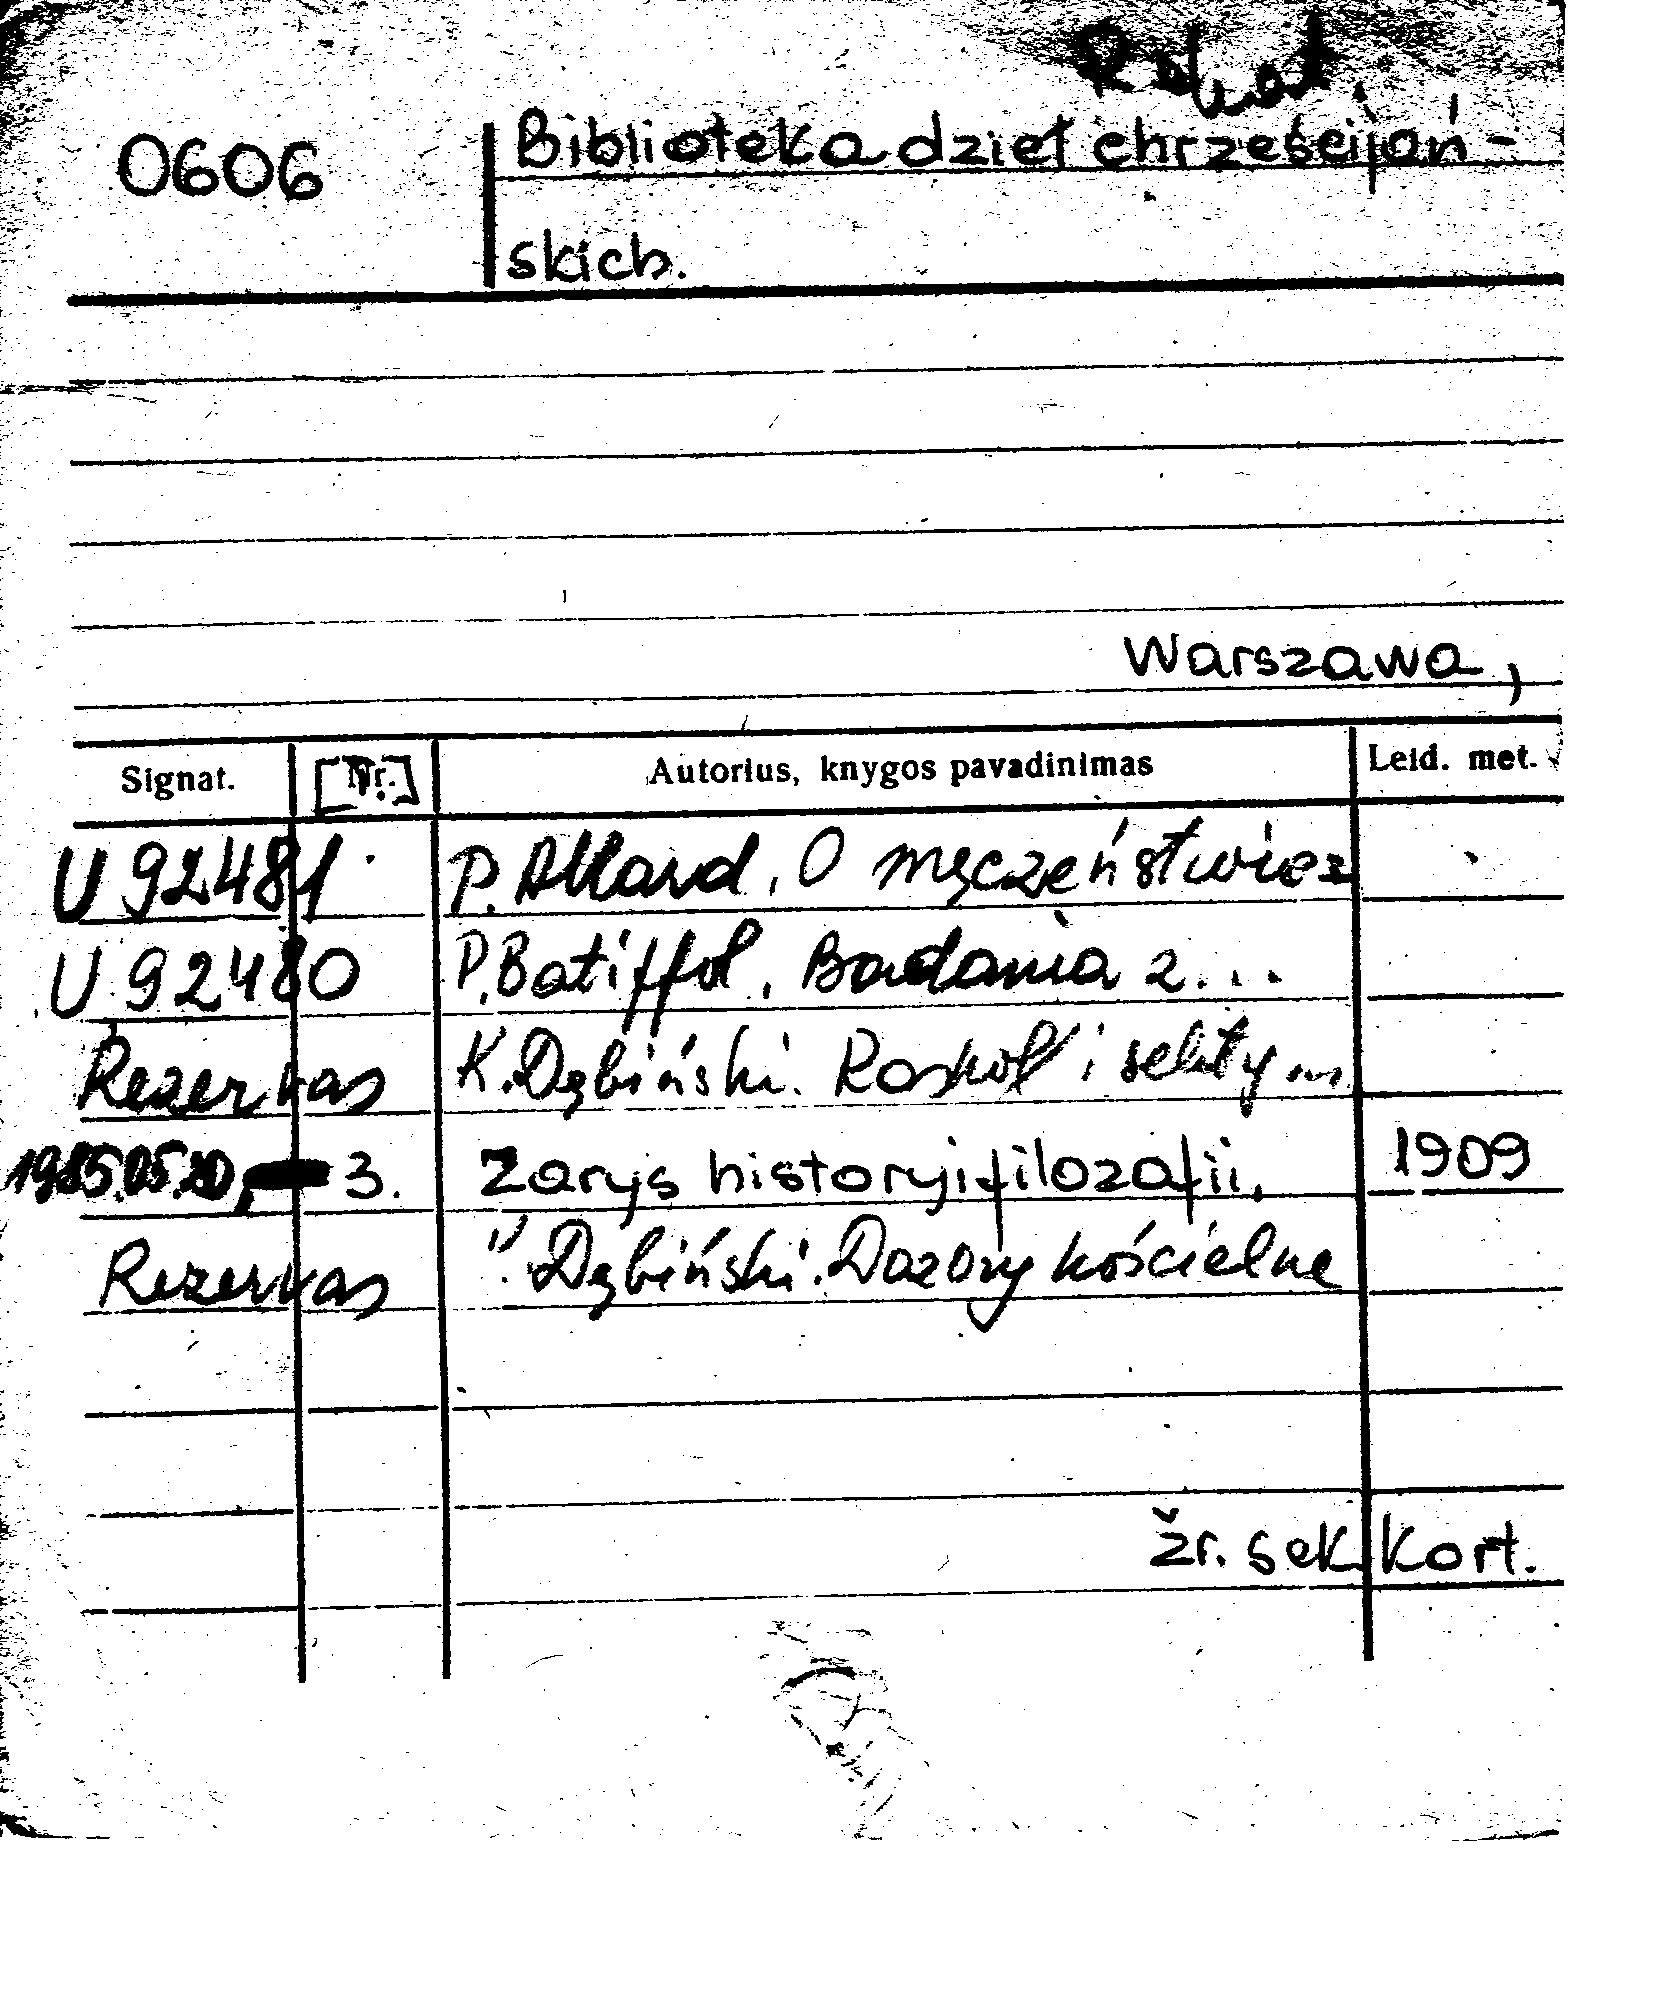 0606 Biblioteka dzieł chrześcijań-
skich.
Warszawa,
Signat. [Nr.] Autorius, knygos pavadinimas Leid. met.
U 92481 P. Allard, O męczeństwie
U 92480 P. Batiffol, Badania z...
Rezervas K. Dębiński. Raskoł i sekty
1985.05.20, 3. Zarys historyi filozofii. 1909
Rezervas " Dębiński. Dozory kościelne
žr. sek. kort.